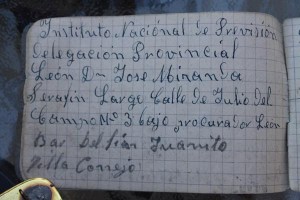 Instituto Nacional de Previsión
delegación Provincial
León Dn Jose Miranda
Serafin Largo Calle de Julio del
Campo Nº 3 bajo procurador León
Bar del tian Juanito
Villa Conejo